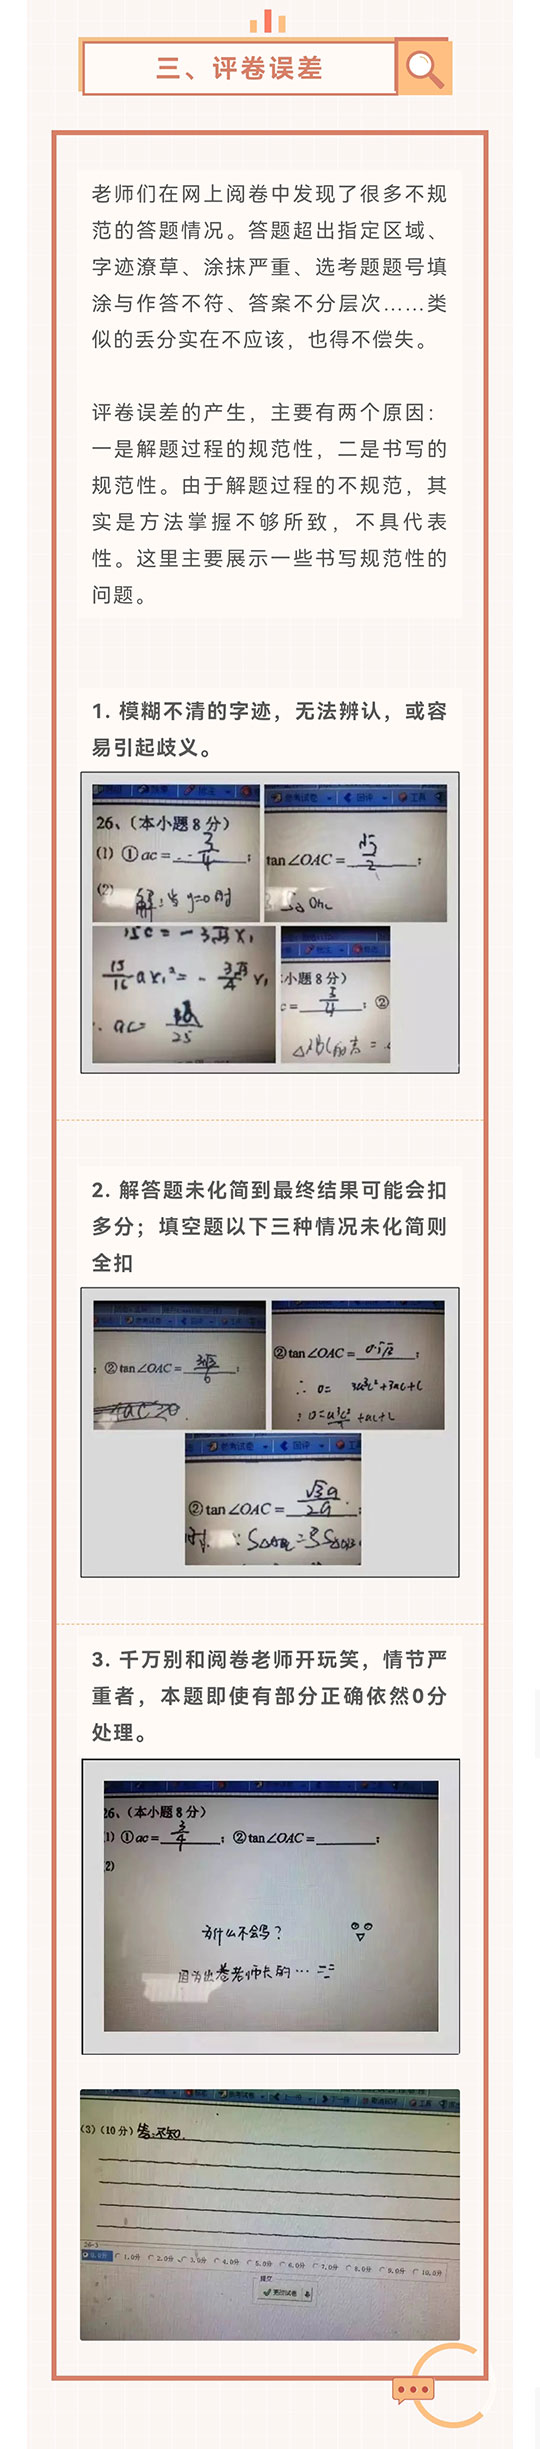 三、评卷误差
老师们在网上阅卷中发现了很多不规
范的答题情况。答题超出指定区域、
字迹潦草、涂抹严重、选考题题号填
涂与作答不符、答案不分层次……类
似的丢分实在不应该，也得不偿失。
评卷误差的产生，主要有两个原因：
一是解题过程的规范性，二是书写的
规范性。由于解题过程的不规范，其
实是方法掌握不够所致，不具代表
性。这里主要展示一些书写规范性的
问题。
1. 模糊不清的字迹，无法辨认，或容
易引起歧义。
26、（本小题8分）
(1) ①ac=
3/4
;
(2)
解：当 y=0时
tan∠OAC=
√3/2
;
ac=
25
小题8分）
3/4
; ②
2. 解答题未化简到最终结果可能会扣
多分；填空题以下三种情况未化简则
全扣
②tan∠OAC=
3√3/6
;
②tan∠OAC=
;
②tan∠OAC=
√3a/2a
3. 千万别和阅卷老师开玩笑，情节严
重者，本题即使有部分正确依然0分
处理。
26、（本小题8分）
1) ①ac=
3/4
; ②tan∠OAC=
;
2)
为什么不会写？
因为出卷老师长的…
(3)（10分）答:不知.
26-3
0.0分 1.0分 2.0分 3.0分 4.0分 5.0分 6.0分 7.0分 8.0分 9.0分 10.0分
提交